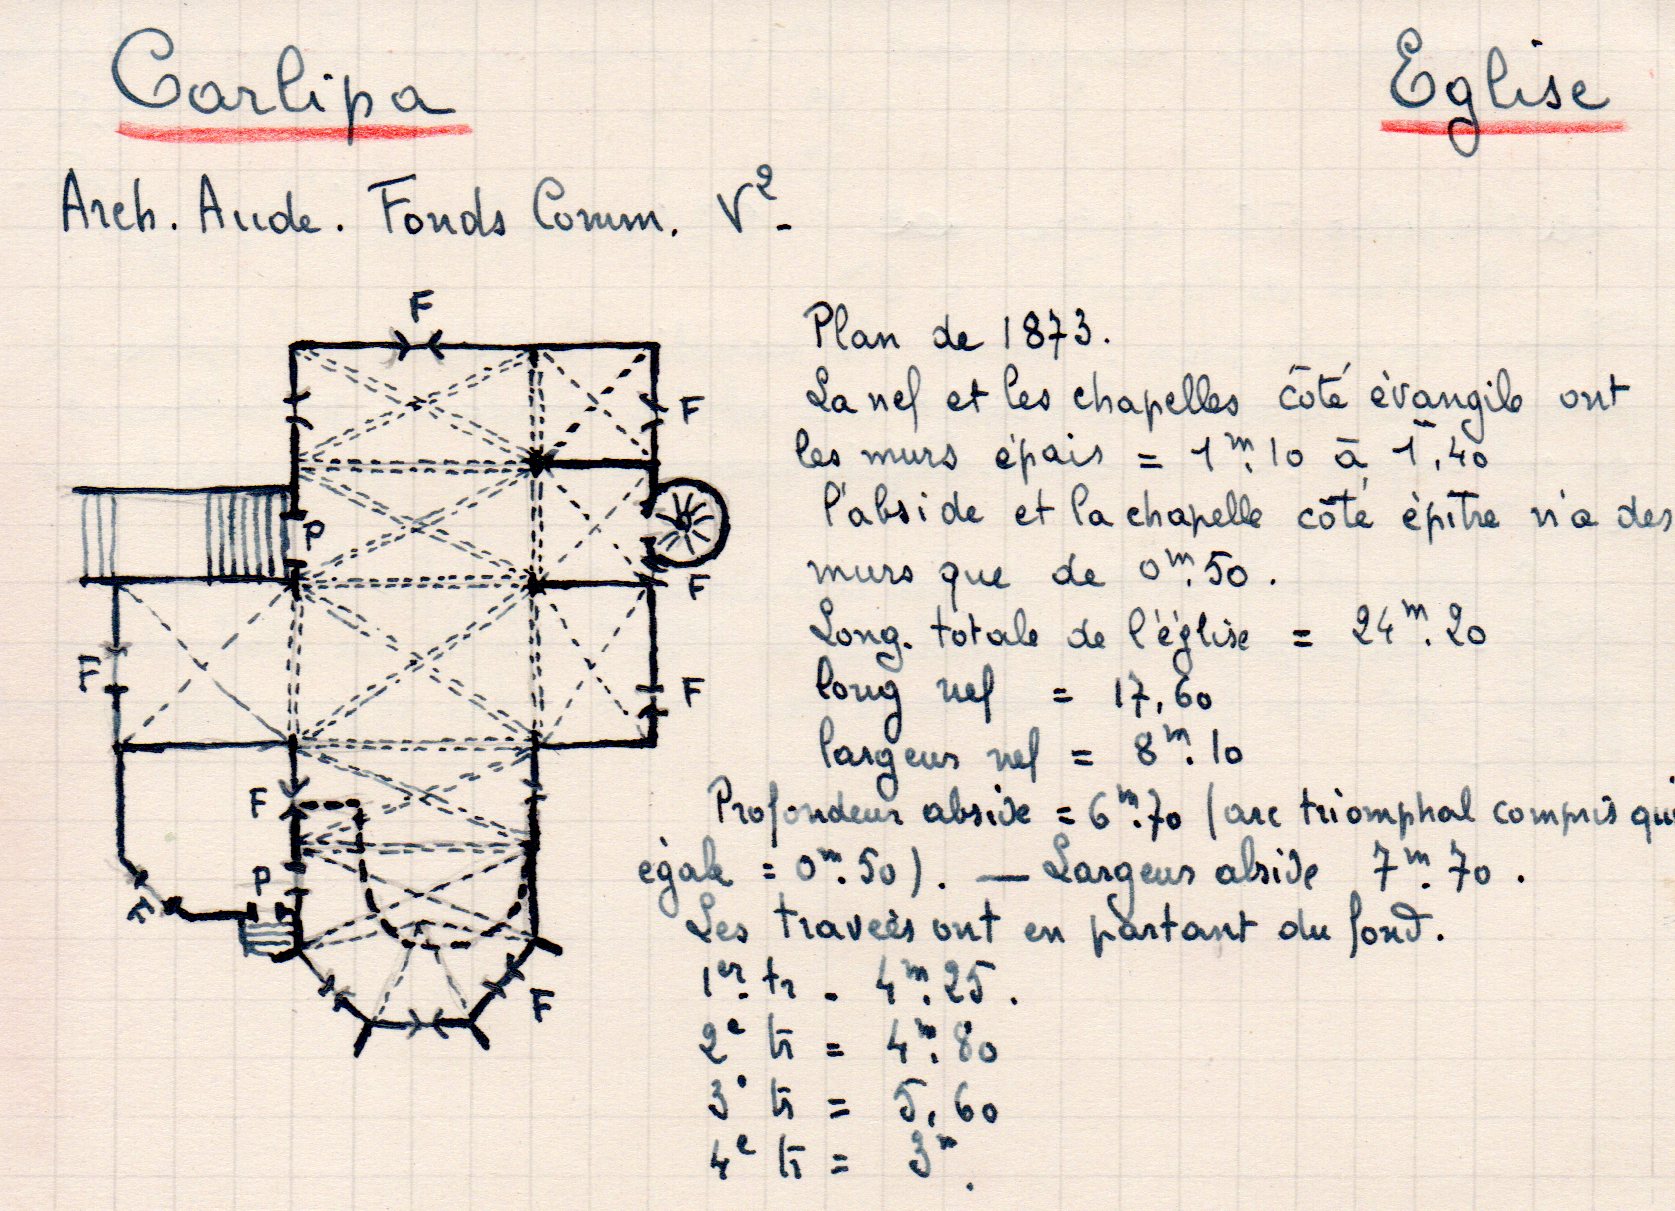 Carlipa
Eglise
Arch. Aude. Fonds Comm. V²-
F
F
P
F
F
F
F
P
F
F
Plan de 1873.
La nef et les chapelles côté évangile ont
les murs épais = 1m.10 à 1m,40
l'abside et la chapelle côté épître n'a des
murs que de 0m.50.
Long. totale de l'église = 24m.20
long nef = 17,60
largeur nef = 8m.10
Profondeur abside = 6m.70 (arc triomphal compris qui
égale = 0m.50). — Largeur abside 7m.70.
Les travées ont en partant du fond.
1er tr - 4m.25.
2e tr = 4m.80
3e tr = 5,60
4e tr = 3m.